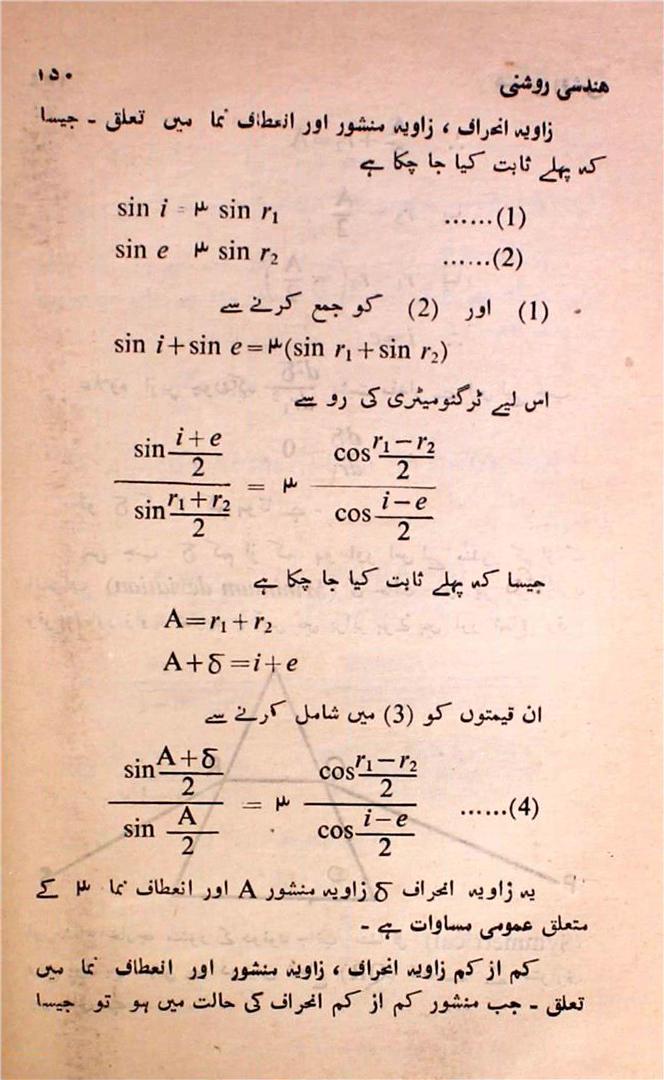 ۱۵۰
هندسی روشنی
زاویہ انحراف ، زاویہ منشور اور انعطاف نما میں تعلق ۔ جیسا
کہ پہلے ثابت کیا جا چکا ہے
sin i = μ sin r₁ ......(1)
sin e μ sin r₂ ......(2)
(1) اور (2) کو جمع کرنے سے
sin i+sin e=μ(sin r₁+sin r₂)
اس لیے ٹرگنومیٹری کی رو سے
sin (i+e)/2 / sin (r₁+r₂)/2 = μ cos (r₁−r₂)/2 / cos (i−e)/2
جیسا کہ پہلے ثابت کیا جا چکا ہے
A=r₁+r₂
A+δ=i+e
ان قیمتوں کو (3) میں شامل کرنے سے
sin (A+δ)/2 / sin A/2 = μ cos (r₁−r₂)/2 / cos (i−e)/2 ......(4)
یہ زاویہ انحراف δ زاویہ منشور A اور انعطاف نما μ کے
متعلق عمومی مساوات ہے ۔
کم از کم زاویہ انحراف ، زاویہ منشور اور انعطاف نما میں
تعلق ۔ جب منشور کم از کم انحراف کی حالت میں ہو تو جیسا